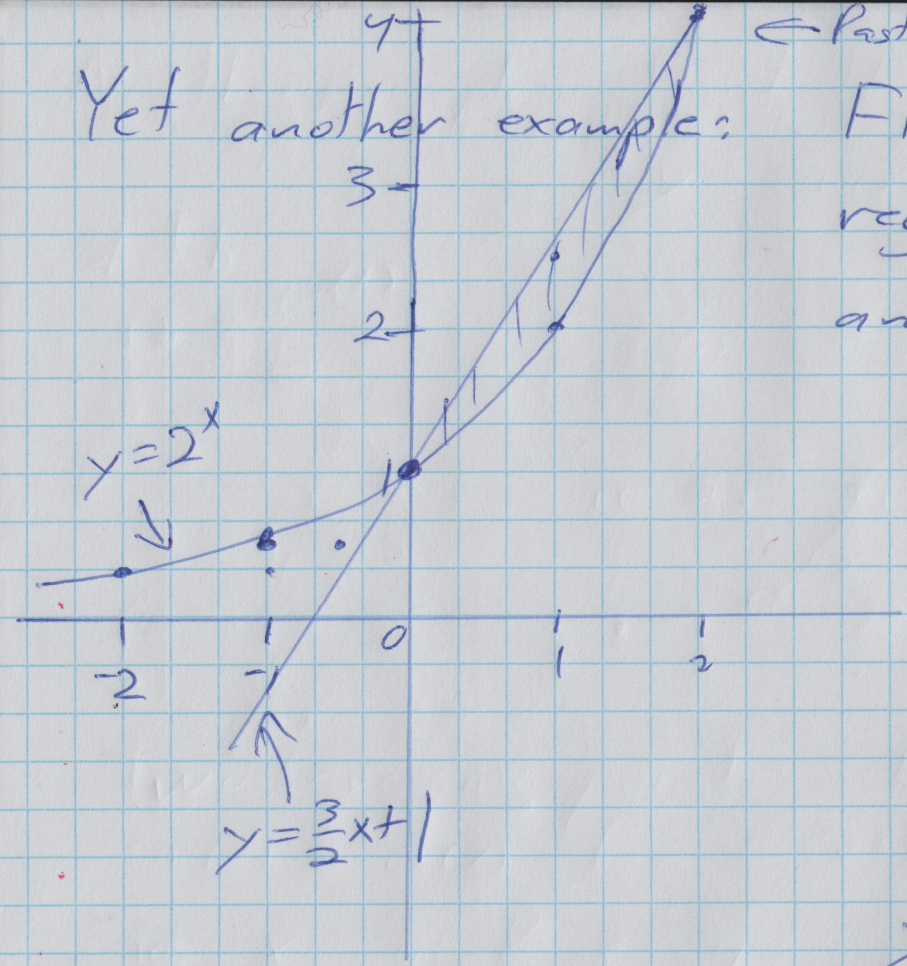 4 ← Past
Yet another example:
3
2
y=2^x
1
-2 -1 0 1 2
y = 3/2 x + 1